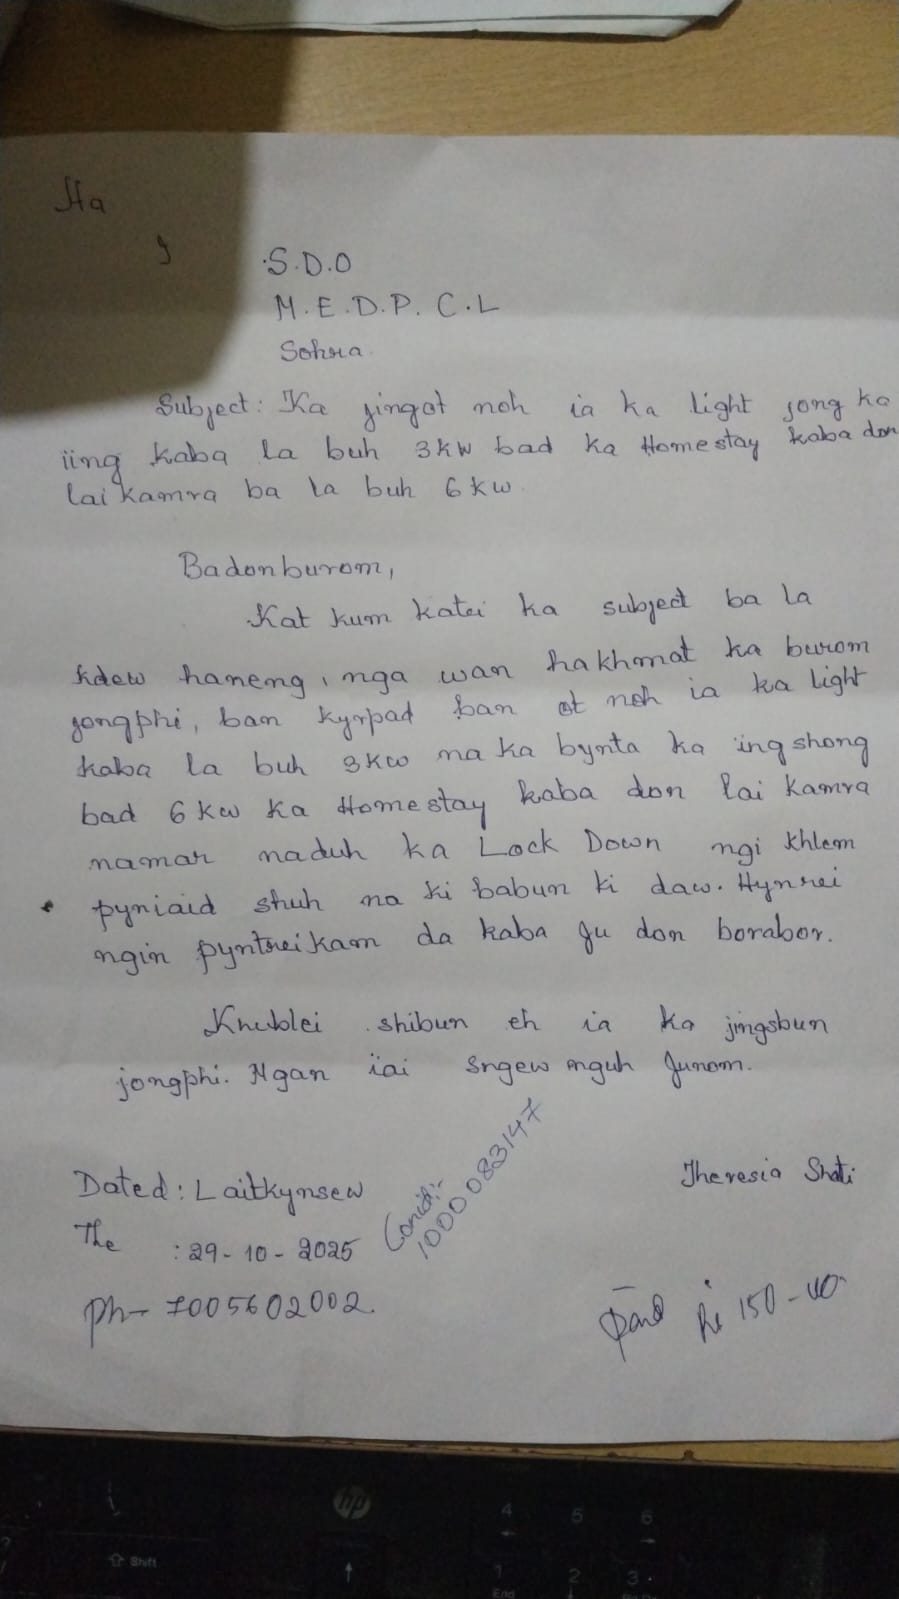 Ha
S.D.O
M.E.D.P.C.L
Sohra
Subject: Ka jingot noh ia ka light jong ka
iing kaba la buh 3kw bad ka Homestay kaba don
lai kamra ba la buh 6kw
Badonburom,
Kat kum katei ka subject ba la
kdew haneng, nga wan hakhmat ka burom
jongphi, ban kyrpad ban ot noh ia ka light
kaba la buh 3kw na ka bynta ka ingshong
bad 6kw ka Homestay kaba don lai kamra
namar naduh ka Lock Down ngi khlem
pyniaid shuh na ki babun ki daw. Hynrei
ngin pyntreikam da kaba ju don borabor.
Khublei shibun eh ia ka jingsbun
jongphi. Ngan ïai sngew nguh Junom.
Theresia Shati
Dated: Laitkynsew
The : 29-10-2025
Ph- 7005602002.
1000083147
Paid Rs 150-00
HP
Shift
4
5
6
1
End
2
3